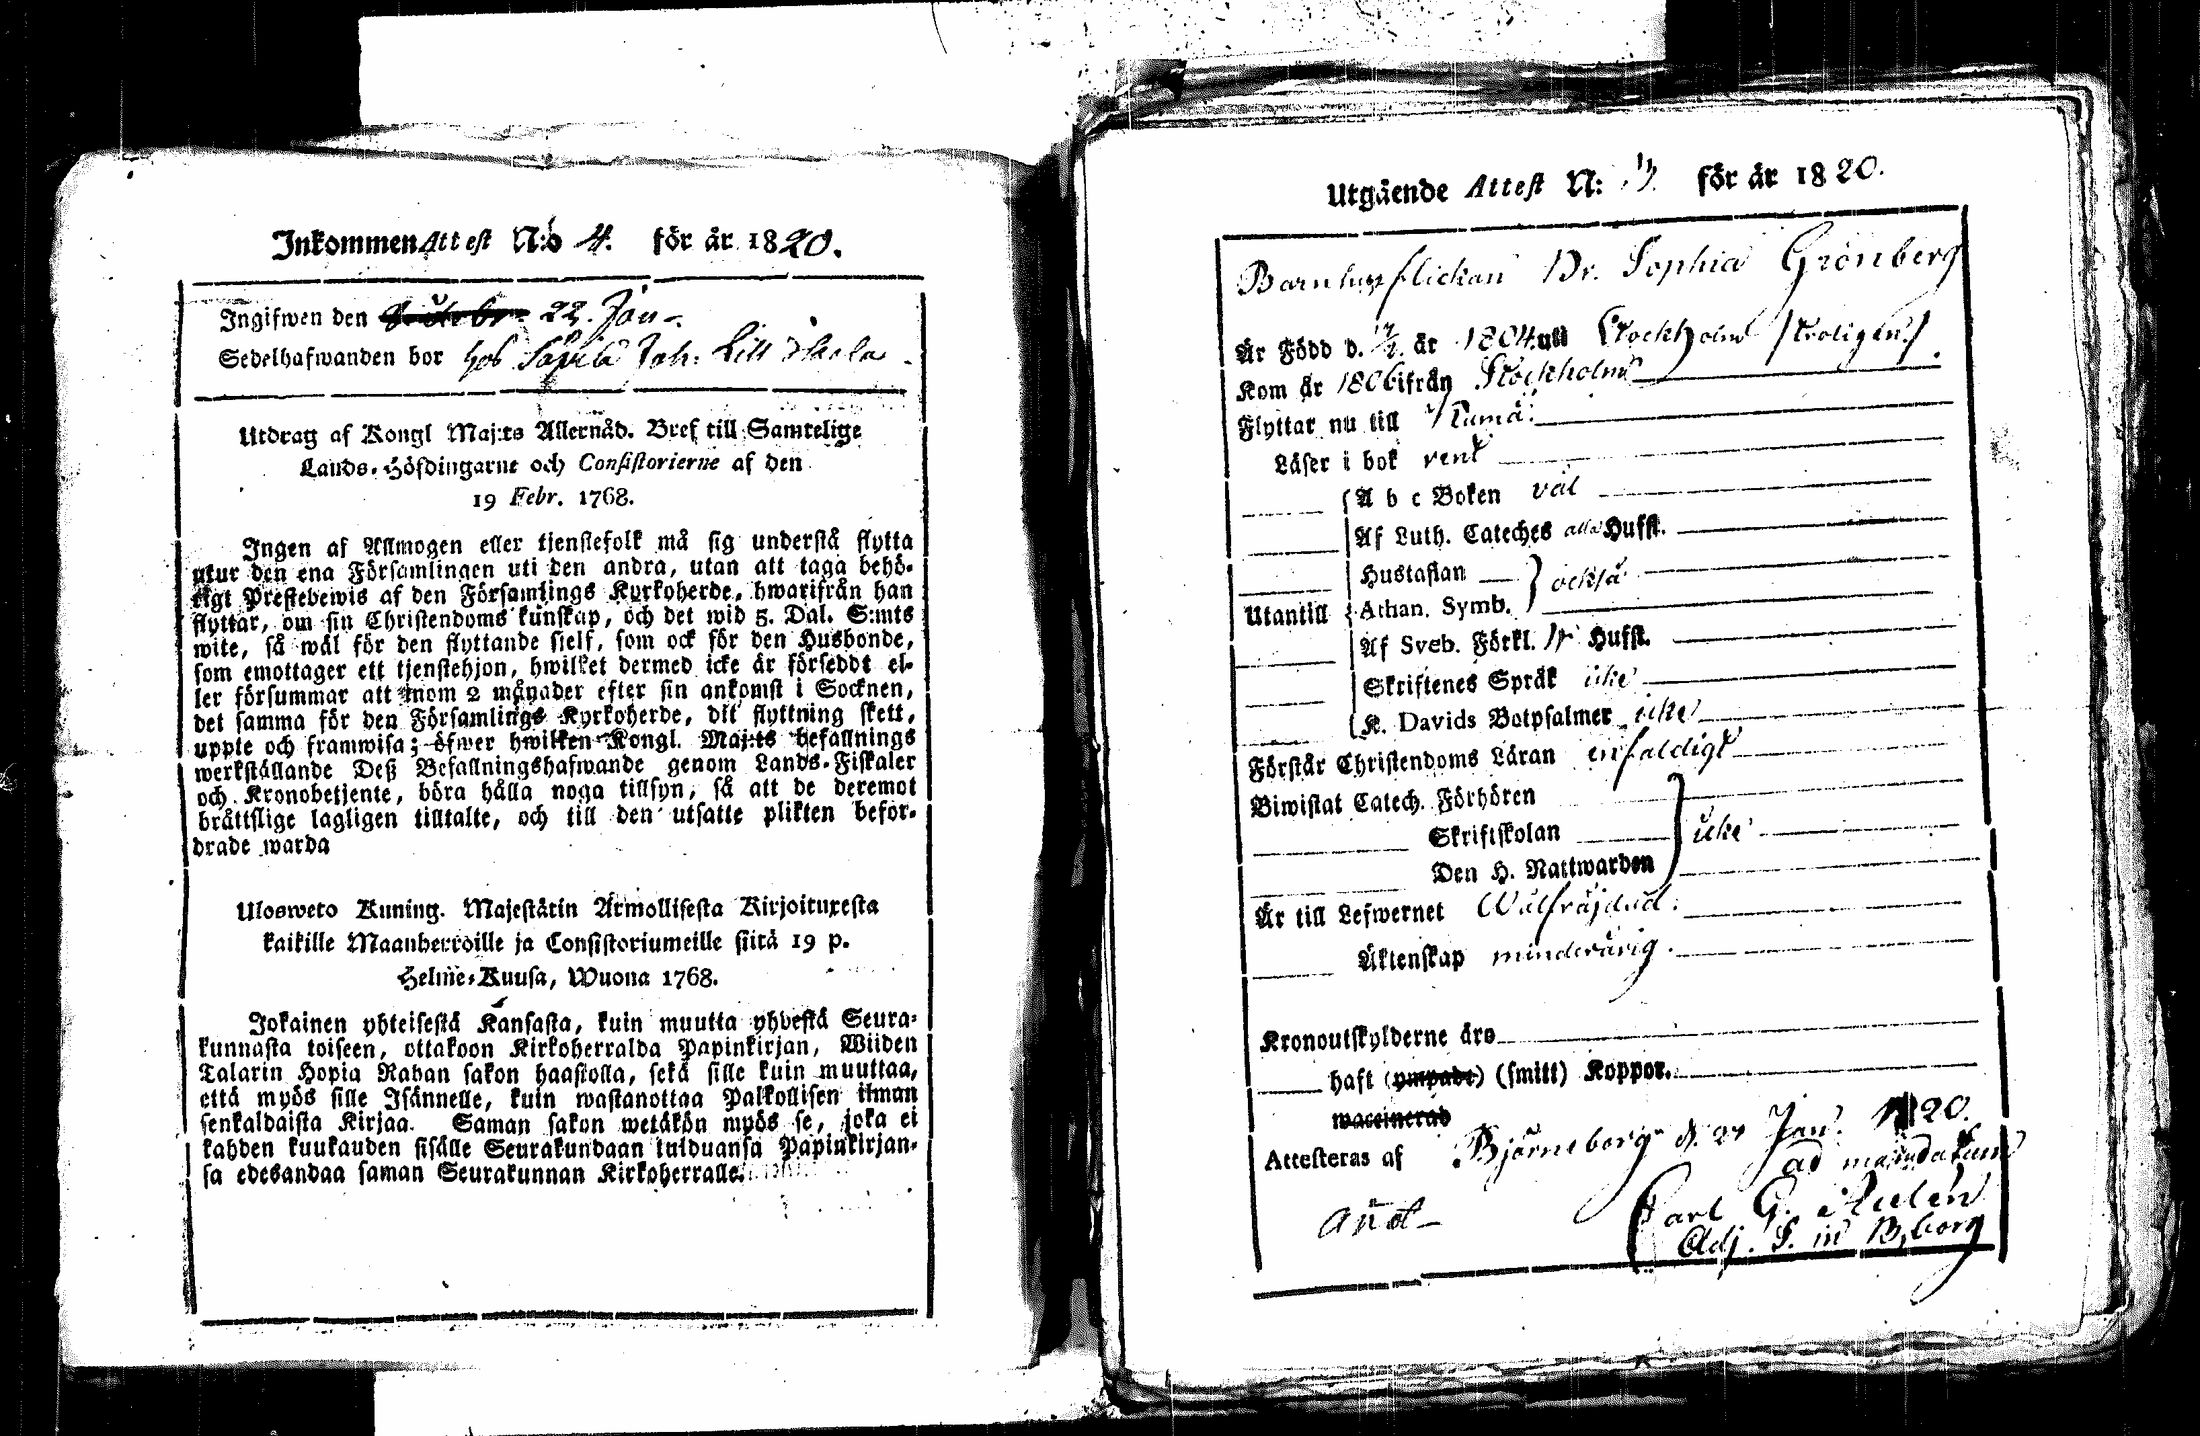 Inkommen Attest N:o 4. för år 1820.
Ingifwen den 22. Jan.
Sedelhafwanden bor hos Joh: Lill
Utdrag af Kongl Maj:ts Allernåd. Bref till Samtelige
Lands-Höfdingarne och Consistorierne af den
19 Febr. 1768.
Ingen af Allmogen eller tjenstefolk må sig understå flytta
utur den ena Församlingen uti den andra, utan att taga behö-
rigt Prestebewis af den Församlings Kyrkoherde, hwarifrån han
flyttar, om sin Christendoms kunskap, och det wid 5. Dal. S:mts
wite, så wäl för den flyttande sjelf, som ock för den Husbonde,
som emottager ett tjenstehjon, hwilket dermed icke är förseddt el-
ler försummar att inom 2 månader efter sin ankomst i Socknen,
det samma för den Församlings Kyrkoherde, dit flyttning skett,
uppte och framwisa; öfwer hwilken Kongl. Maj:ts befallnings
werkställande Deß Befallningshafwande genom Lands-Fiskaler
och Kronobetjente, böra hålla noga tillsyn, så att de deremot
bråttslige lagligen tilltalte, och till den utsatte plikten befor-
drade warda
Ulosweto Kuning. Majestätin Armollisesta Kirjoituxesta
kaikille Maanherroille ja Consistoriumeille siitä 19 p.
Helme-Kuusa, Wuona 1768.
Jokainen yhteisestä Kansasta, kuin muutta yhdestä Seura-
kunnasta toiseen, ottakoon Kirkoherralda Papinkirjan, Wiiden
Talarin Hopia Rahan sakon haastolla, sekä sille kuin muuttaa,
että myös sille Isännelle, kuin wastanottaa Palkollisen ilman
senkaldaista Kirjaa. Saman sakon wetäkön myös se, joka ei
kahden kuukauden sisälle Seurakundaan tulduansa Papinkirjan-
sa edesandaa saman Seurakunnan Kirkoherralle.
Utgående Attest N: för år 1820.
Barnhusflickan Br. Sophia Grönberg
Är Född d. år 1804 uti Stockholm /troligen/.
Kom år 1806 ifrån Stockholm
Flyttar nu till
Läser i bok rent
A b c Boken väl
Af Luth. Cateches alla Hufst.
Hustaflan
också
Utantill Athan. Symb.
Af Sveb. Förkl. Hufst.
Skriftenes Språk icke
K. Davids Botpsalmer icke
Förstår Christendoms Läran enfaldigt
Biwistat Catech. Förhören
Skriftskolan icke
Den H. Nattwarden
Är till Lefwernet Wälfräjdad.
Äktenskap minderårig.
Kronoutskylderne äro
haft (ympade) (smitt) Koppor.
waccinerad
Attesteras af Björneborg d. Jan. 1820.
ad mandatum
Carl G.
Adj. S. in B,borg